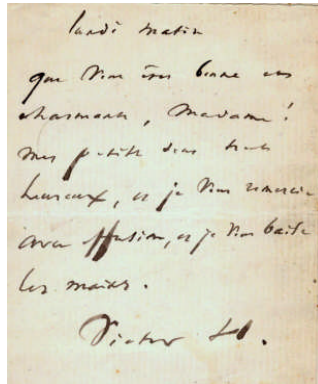 lundi matin
que vous êtes bonne et
charmante, Madame !
mes petits sont très
heureux, et je vous remercie
avec effusion, et je vous baise
les mains.
Victor H.